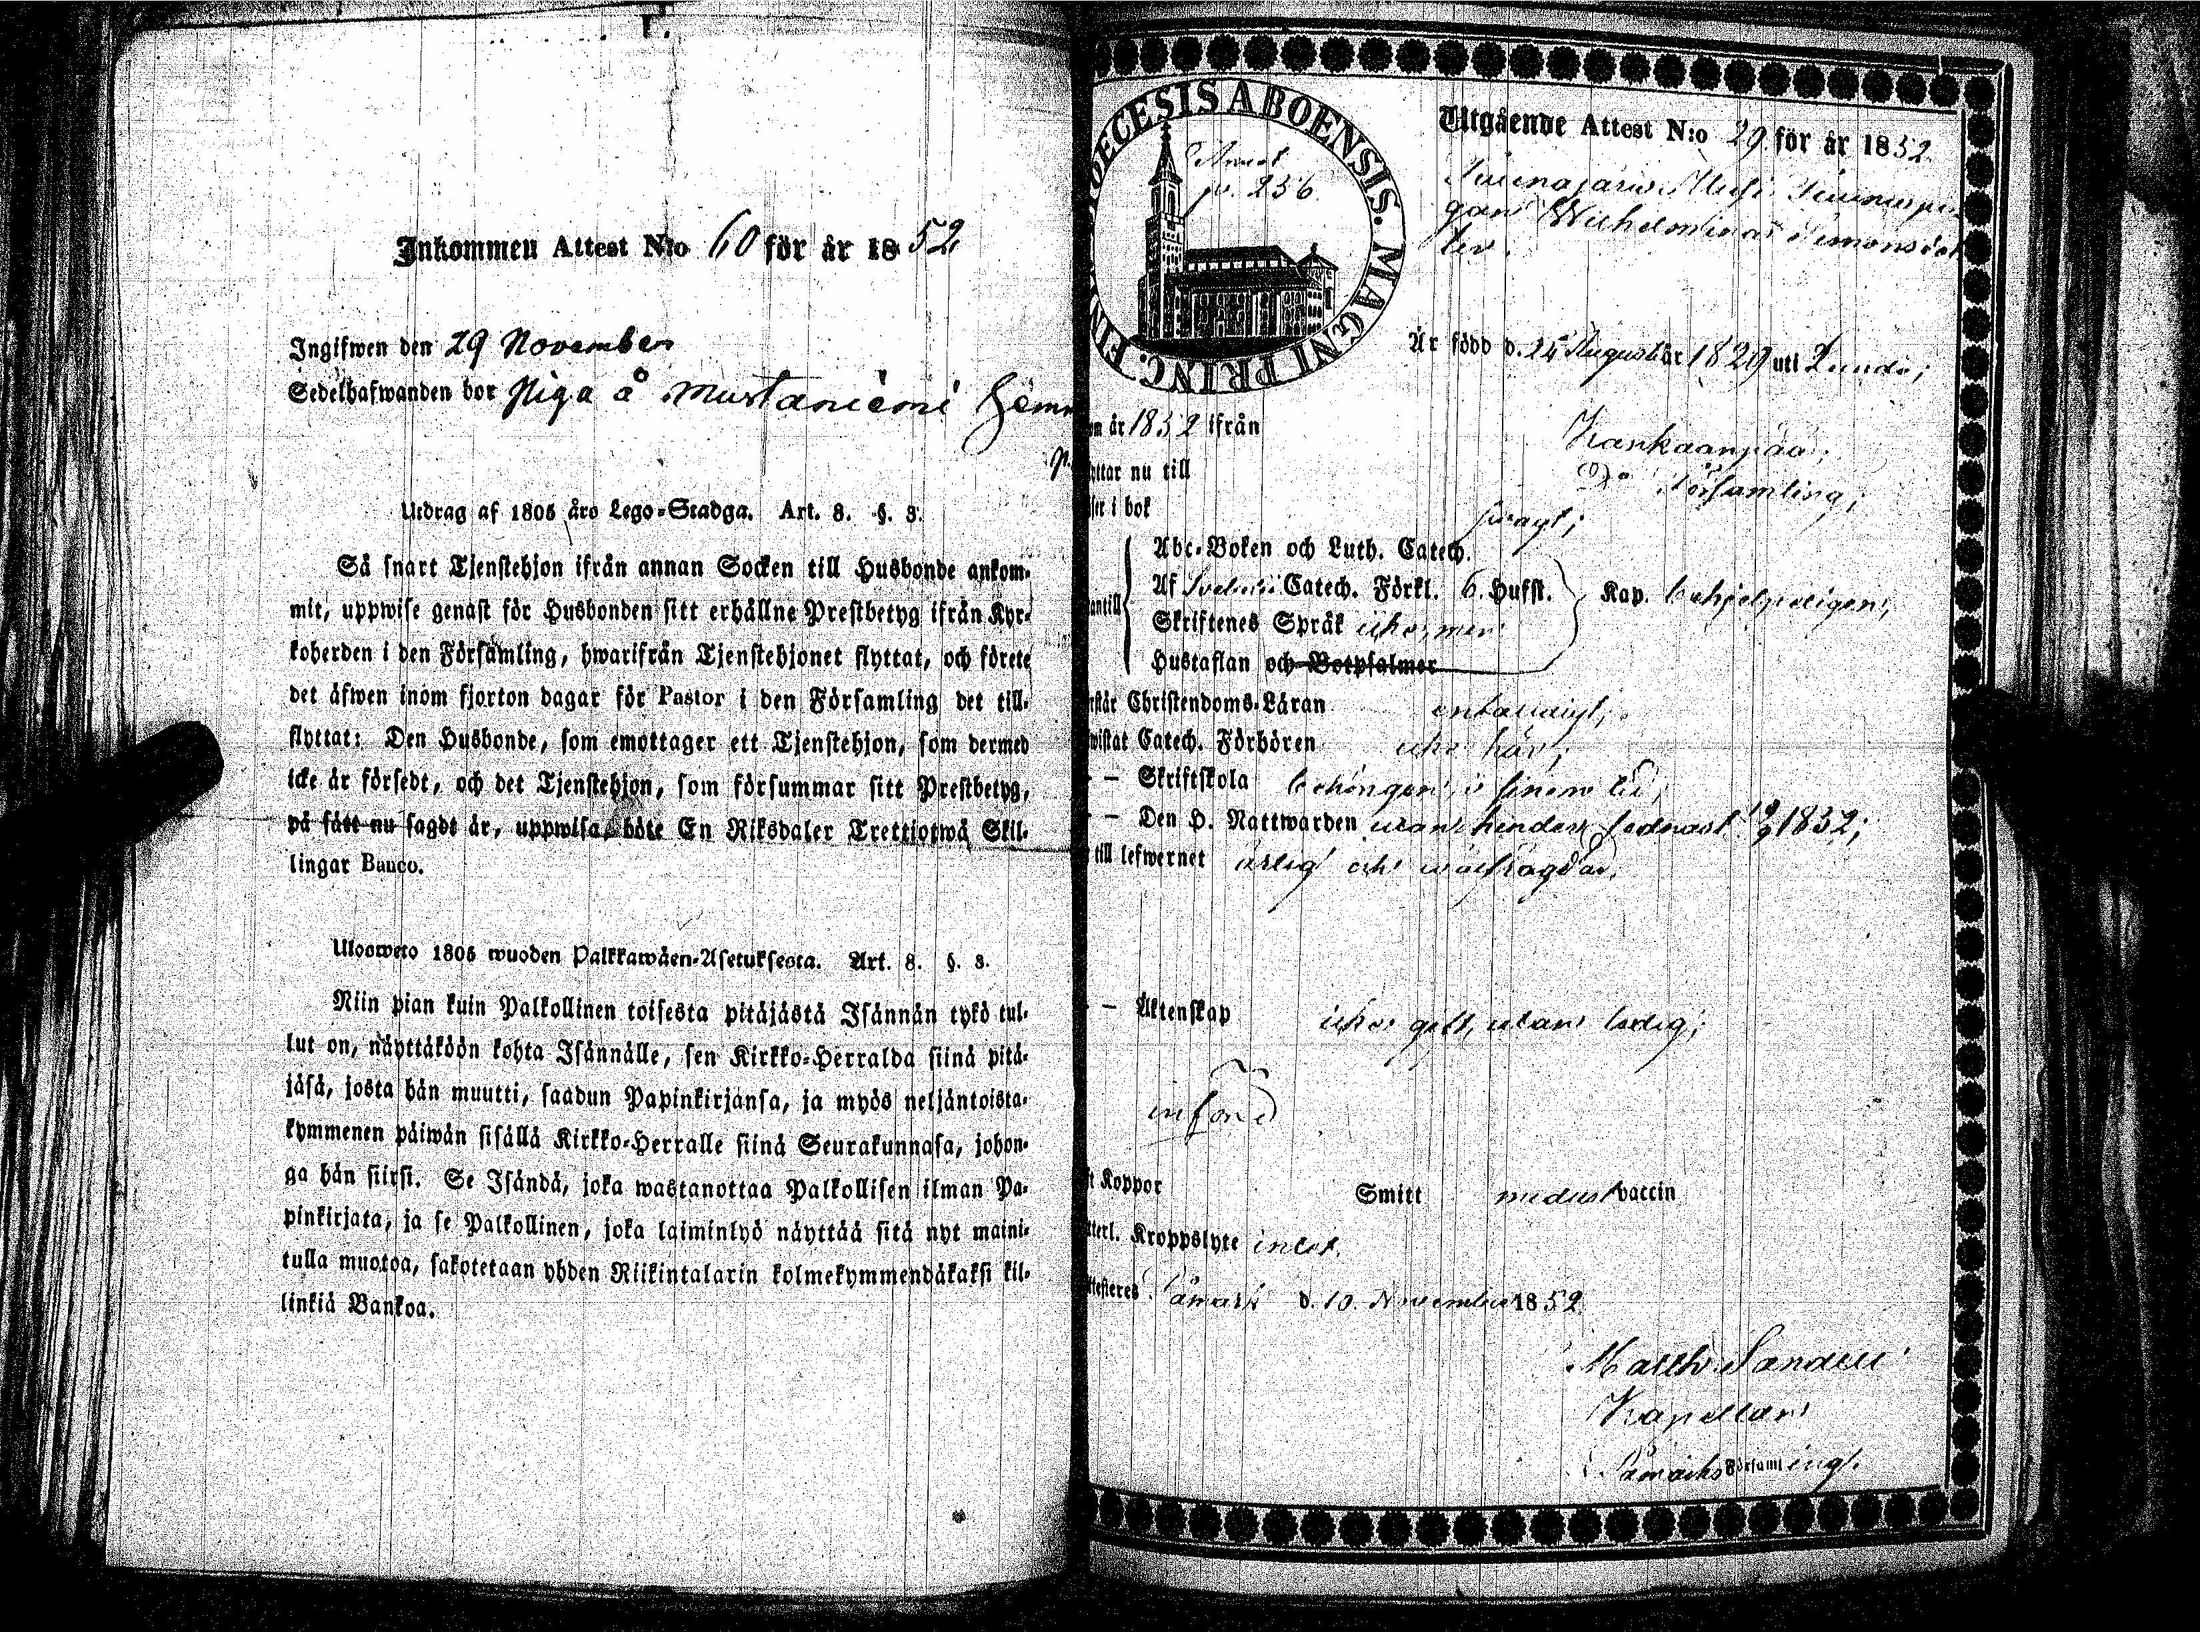 Inkommen Attest N:o 60 för år 1852
Ingifwen den 29 November
Sedelhafwanden bor Piga å Mustaniemi Hemm
Utdrag af 1805 års Lego-Stadga. Art. 8. §. 3.
Så snart Tjenstehjon ifrån annan Socken till Husbonde ankom-
mit, uppwise genast för Husbonden sitt erhållne Prestbetyg ifrån Kyr-
koherden i den Församling, hwarifrån Tjenstehjonet flyttat, och förete
det äfwen inom fjorton dagar för Pastor i den Församling det till-
flyttat: Den Husbonde, som emottager ett Tjenstehjon, som dermed
icke är försedt, och det Tjenstehjon, som försummar sitt Prestbetyg,
på sätt nu sagdt är, uppwisa, böte En Riksdaler Trettiotwå Skil-
lingar Banco.
Ulosweto 1805 wuoden Palkkawäen-Asetuksesta. Art. 8. §. 3.
Niin pian kuin Palkollinen toisesta pitäjästä Isännän tykö tul-
lut on, näyttäköön kohta Isännälle, sen Kirkko-Herralda siinä pitä-
jäsä, josta hän muutti, saadun Papinkirjansa, ja myös neljäntoista-
kymmenen päiwän sisällä Kirkko-Herralle siinä Seurakunnasa, johon-
ga hän siirsi. Se Isändä, joka wastanottaa Palkollisen ilman Pa-
pinkirjata, ja se Palkollinen, joka laiminlyö näyttää sitä nyt maini-
tulla muotoa, sakotetaan yhden Riikintalarin kolmekymmendäkaksi kil-
linkiä Bankoa.
DIOECESIS ABOENSIS. MAGNI PRINC. FIN
p. 256.
Utgående Attest N:o 29 för år 1852.
gan Wilhelmina Simonsdot
ter.
Är född d. 25 Augusti år 1829 uti
en år 1852 ifrån Kankaanpää;
yttar nu till Do Församling;
ser i bok swagt;
Abc-Boken och Luth. Catech.
antill Af Svebelii Catech. Förkl. 6. Hufst. Kap. behjelpeligen;
Skriftenes Språk icke mer
Hustaflan och Botpsalmer
rstår Christendoms-Läran enfaldigt;
wistat Catech. Förhören icke här;
— Skriftskola behörigen i sinom tid;
— Den H. Nattwarden utan hinder sednast 19/9 1852;
till lefwernet ärlig och wälfrägdad.
— Äktenskap icke gift, utan ledig;
införd
ft Koppor Smitt medelst vaccin
tterl. Kroppslyte intet.
ttesteres Påmark d. 10. November 1852
Matth. Sandell
Kapellan
i Påmarks Församling.